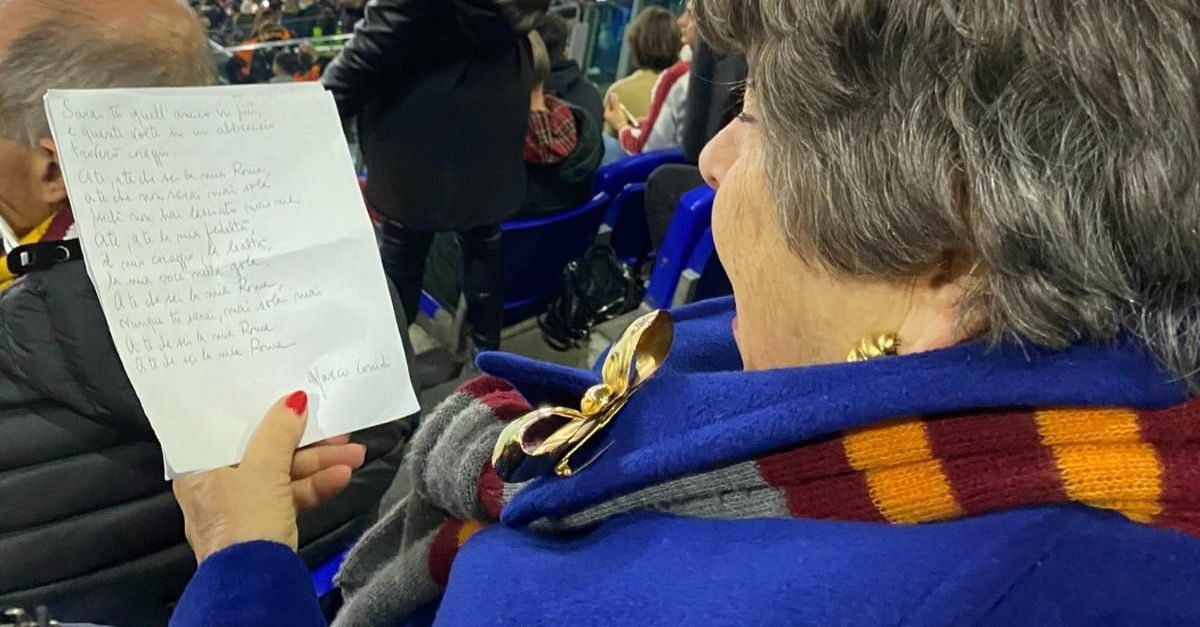 Sarai tu quell'amico in più,
e quante volte in un abbraccio
troverò coraggio
A te, a te che sei la mia Roma,
a te che non sarai mai sola
perché non hai lasciato mai me
A te, a te la mia fedeltà,
il mio coraggio, la lealtà,
la mia voce nella gola.
A te che sei la mia Roma,
ovunque tu sarai, mai sola mai
A te che sei la mia Roma
A te che sei la mia Roma
Marco